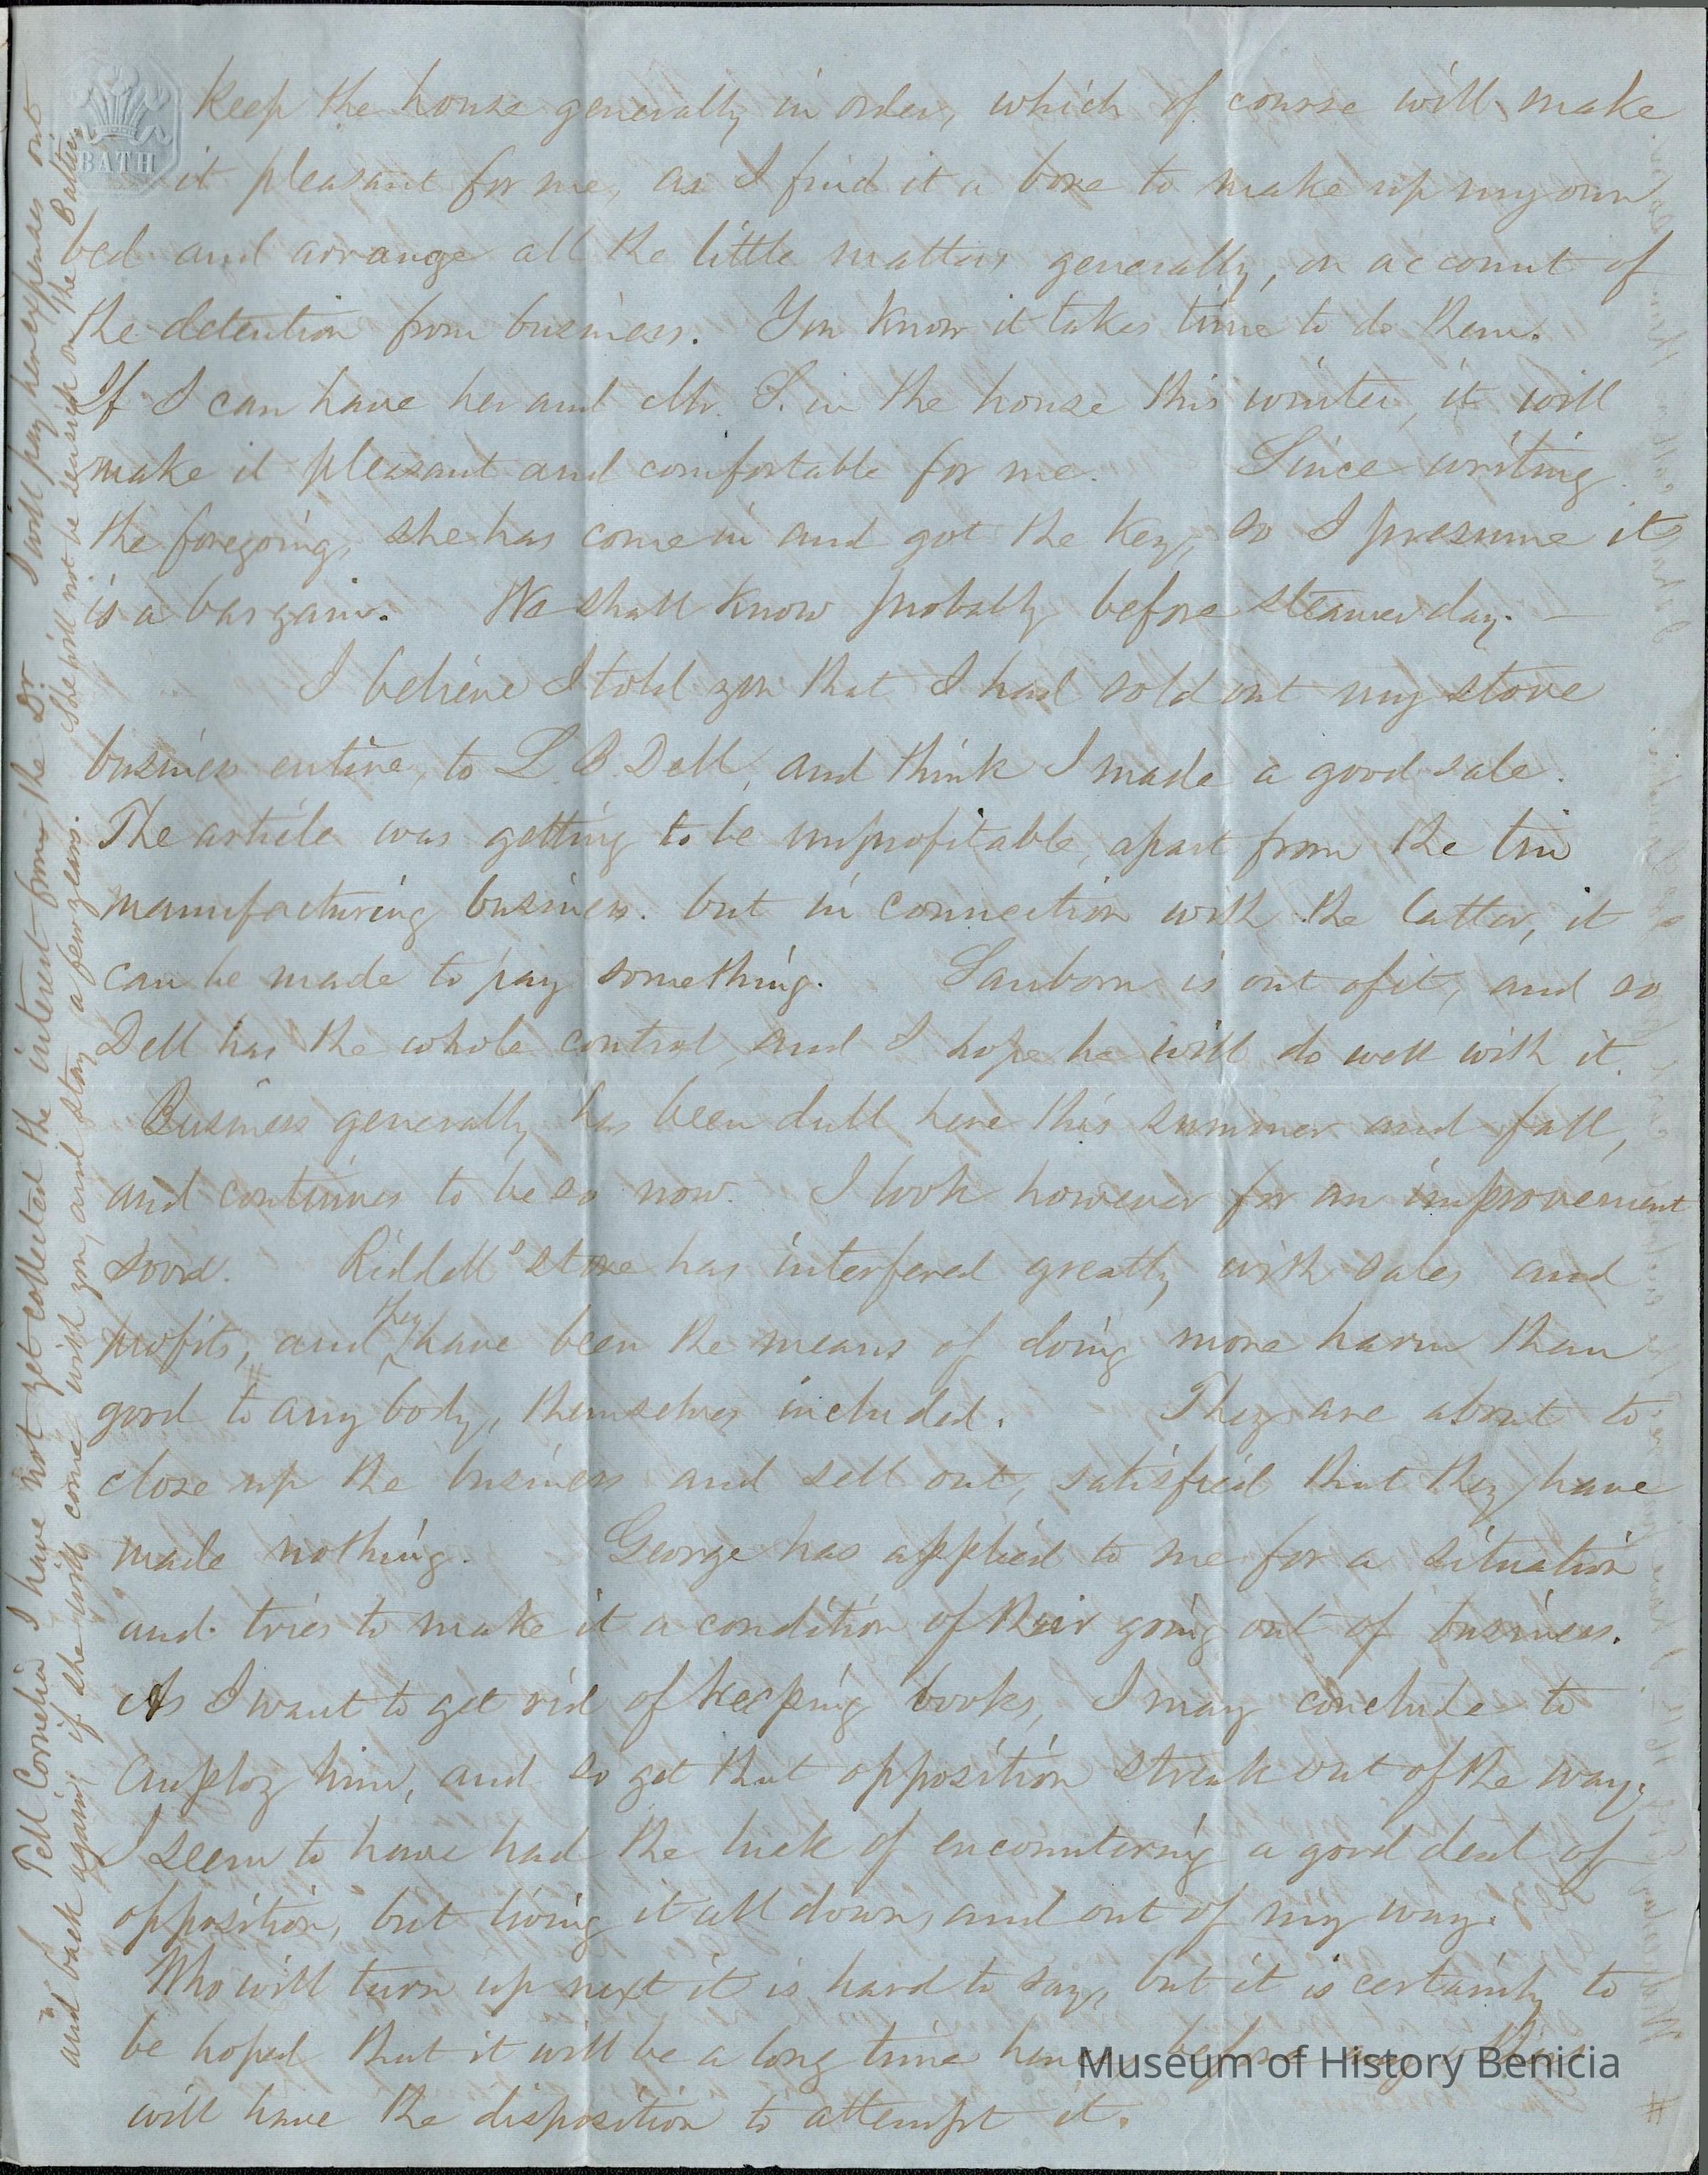 BATH
keep the house generally in order, which of course will make
it pleasant for me, as I find it a bore to make up my own
bed and arrange all the little matters generally, on account of
the detention from business. You know it takes time to do them.
If I can have her and Mr. S. in the house this winter, it will
make it pleasant and comfortable for me. Since writing
the foregoing, she has come in and got the key, so I presume it
is a bargain. We shall know probably before steamer day. —
I believe I told you that I had sold out my stove
business entire, to L. B. Dell, and think I made a good sale.
The article was getting to be unprofitable, apart from the tin
manufacturing business. but in connection with the latter, it
can be made to pay something. Sanborn is out of it, and so
Dell has the whole control, and I hope he will do well with it.
Business generally has been dull here this summer and fall,
and continues to be so now. I look however for an improvement
soon. Riddell's store has interfered greatly with sales and
profits, and they have been the means of doing more harm than
good to any body, themselves included. They are about to
close up the business and sell out, satisfied that they have
made nothing. George has applied to me for a situation
and tries to make it a condition of their going out of business.
As I want to get rid of keeping books, I may conclude to
employ him, and so get that opposition streak out of the way.
I seem to have had the luck of encountering a good deal of
opposition, but living it all down, and out of my way.
Who will turn up next it is hard to say, but it is certainly to
be hoped that it will be a long time before
will have the disposition to attempt it.
Tell Cornelia I have not yet collected the interest from the Dr. I will pay her expenses out
and back again, if she will come with you, and stay a few years. She will not be seasick on the Baltic.
Museum of History Benicia